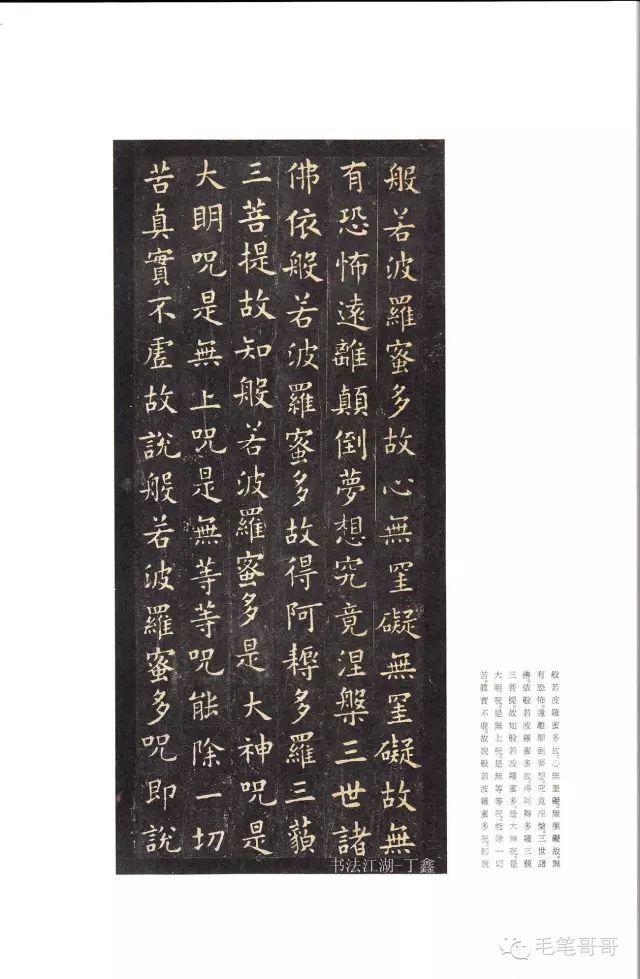 般若波羅蜜多故心無罣礙無罣礙故無
有恐怖遠離顛倒夢想究竟涅槃三世諸
佛依般若波羅蜜多故得阿耨多羅三藐
三菩提故知般若波羅蜜多是大神呪是
大明呪是無上呪是無等等呪能除一切
苦真實不虛故說般若波羅蜜多呪即說
书法江湖-丁鑫
般若波羅蜜多故。心無罣礙。無罣礙故。無
有恐怖。遠離顛倒夢想。究竟涅槃。三世諸
佛。依般若波羅蜜多故。得阿耨多羅三藐
三菩提。故知般若波羅蜜多。是大神呪。是
大明呪。是無上呪。是無等等呪。能除一切
苦。真實不虛。故說般若波羅蜜多呪。即說
毛笔哥哥